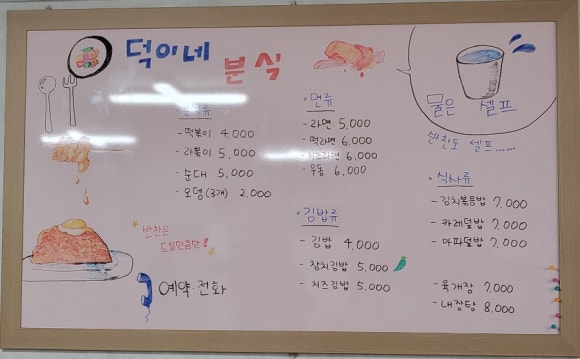 덕이네
분식
분식류
- 떡볶이 4,000
- 라볶이 5,000
- 순대 5,000
- 오뎅(3개) 2,000
반찬은
드실만큼만!
예약·전화
◦면류
- 라면 5,000
- 떡라면 6,000
- 치즈라면 6,000
- 우동 6,000
◦김밥류
- 김밥 4,000
- 참치김밥 5,000
- 치즈김밥 5,000
물은 셀프
반찬도 셀프......
◦식사류
- 김치볶음밥 7,000
- 카레덮밥 7,000
- 마파덮밥 7,000
- 육개장 7,000
- 내장탕 8,000